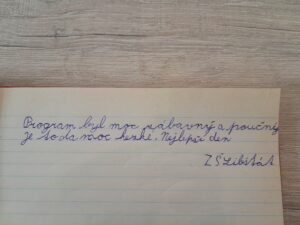 Program byl moc zábavný a poučný
Je to da moc hezké. Nejlepší den
ZŠ Libštát